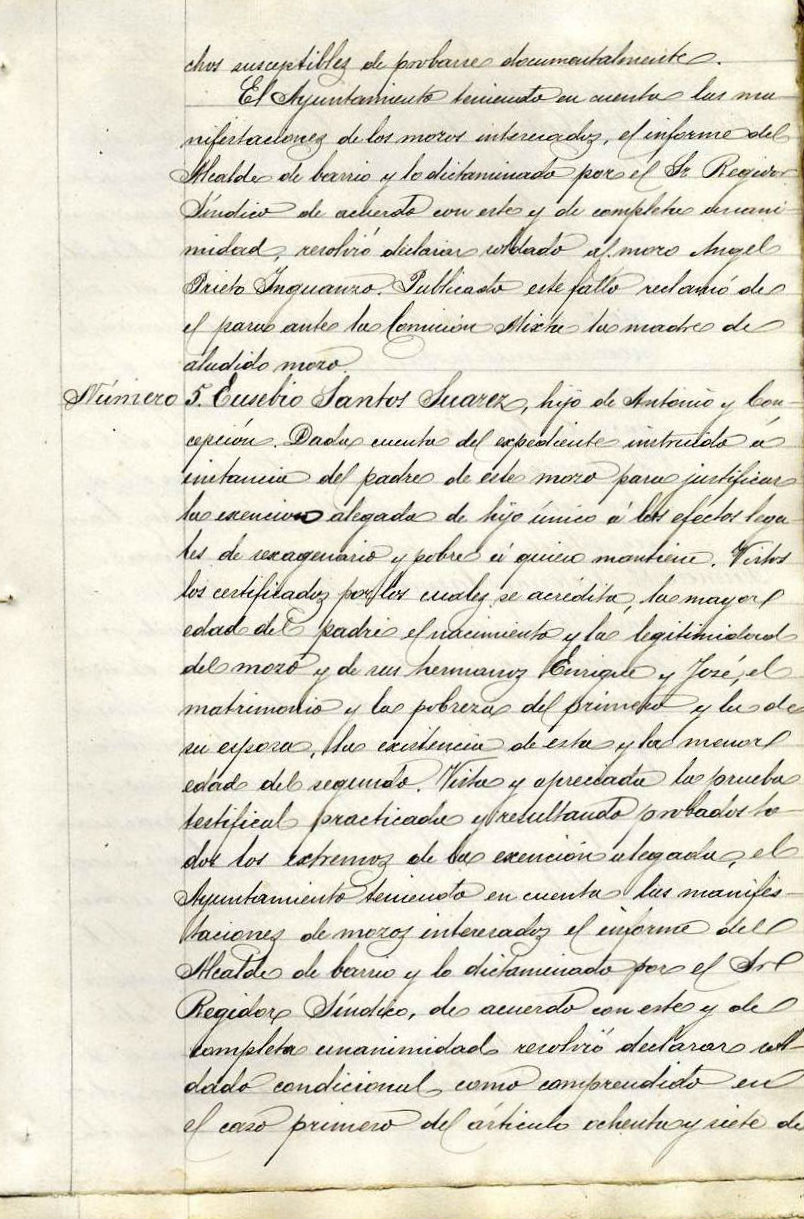 chos susceptibles de probarse documentalmente.
El Ayuntamiento teniendo en cuenta las ma-
nifestaciones de los mozos interesados, el informe del
Alcalde de barrio y lo dictaminado por el Sr Regidor
Síndico de acuerdo con este y de completa unani-
midad, resolvió declarar soldado al mozo Angel
Prieto Inguanzo. Publicado este fallo reclamó de
el para ante la Comisión Mixta la madre de
aludido mozo.
Número 5. Eusebio Santos Suarez, hijo de Antonio y Con-
cepción. Dada cuenta del expediente instruido á
instancia del padre de este mozo para justificar
la exencion alegada de hijo único á los efectos lega-
les de sexagenario y pobre á quien mantiene. Vistos
los certificados por los cuales se acredita, la mayor
edad del padre el nacimiento y la legitimidad
del mozo y de sus hermanos Enrique y José, el
matrimonio y la pobreza del primero y la de
su esposa, la existencia de esta y la menor
edad del segundo. Vista y apreciada la prueba
testifical practicada y resultando probados to-
dos los extremos de la exención alegada, el
Ayuntamiento teniendo en cuenta las manifes-
taciones de mozos interesados el informe del
Alcalde de barrio y lo dictaminado por el Sr
Regidor Síndico, de acuerdo con este y de
completa unanimidad resolvió declarar sol-
dado condicional como comprendido en
el caso primero del artículo ochenta y siete de